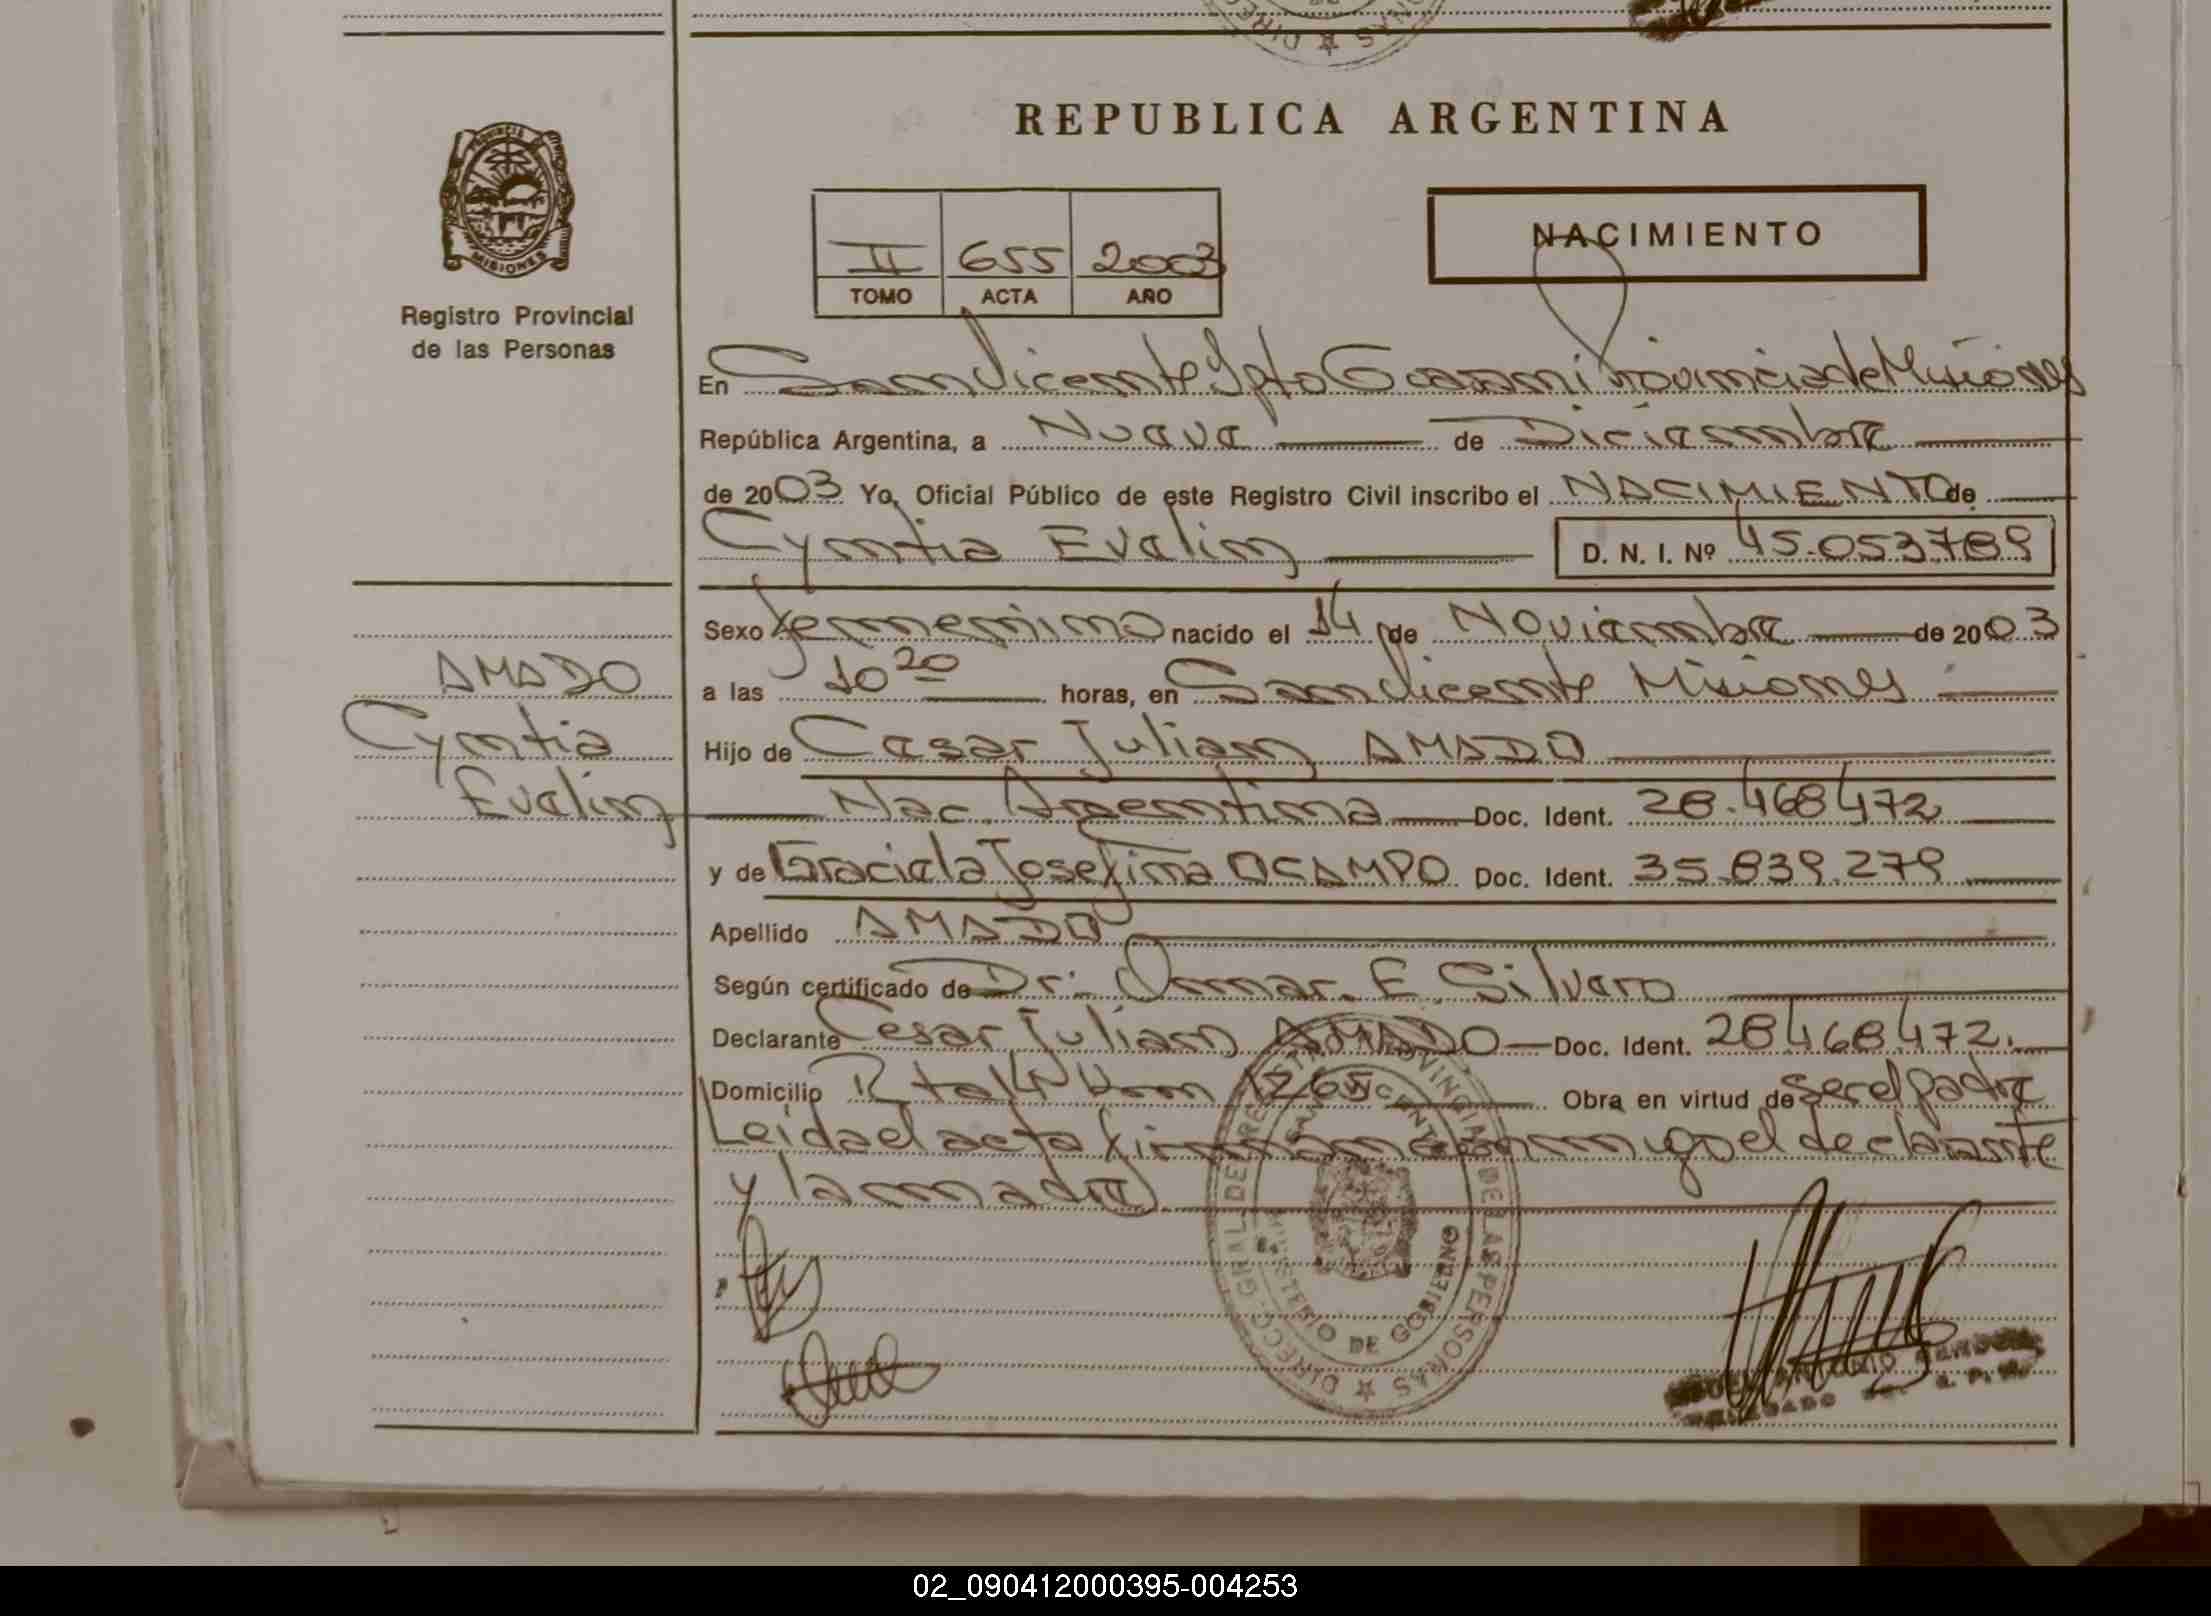 REPUBLICA ARGENTINA
PROVINCIA
MISIONES
Registro Provincial
de las Personas
II 655 2003
TOMO ACTA AÑO
NACIMIENTO
En San Vicente Dpto Guarani Provincia de Misiones
República Argentina, a Nueve de Diciembre
de 2003 Yo, Oficial Público de este Registro Civil inscribo el NACIMIENTO de
Cyntia Evelin D. N. I. Nº 45.053789
Sexo femenino nacido el 14 de Noviembre de 2003
a las 10 20 horas, en San Vicente Misiones
AMADO
Cyntia
Evelin
Hijo de Cesar Julian AMADO
Nac. Argentina Doc. Ident. 28.468472
y de Graciela Josefina OCAMPO Doc. Ident. 35.839.279
Apellido AMADO
Según certificado de Dr: Omar. E. Silvero
Declarante Cesar Julian AMADO Doc. Ident. 28468472.
Domicilio Rta 14 Km 1265 Obra en virtud de ser el padre
Leida el acta firman conmigo el declarante
y la madre.
DIRECC. GRAL. DE REGISTRO PROVINCIAL DE LAS PERSONAS
SAN VICENTE
MINISTERIO DE GOBIERNO
ANTONIO
DELEGADO R. P.
02_090412000395-004253